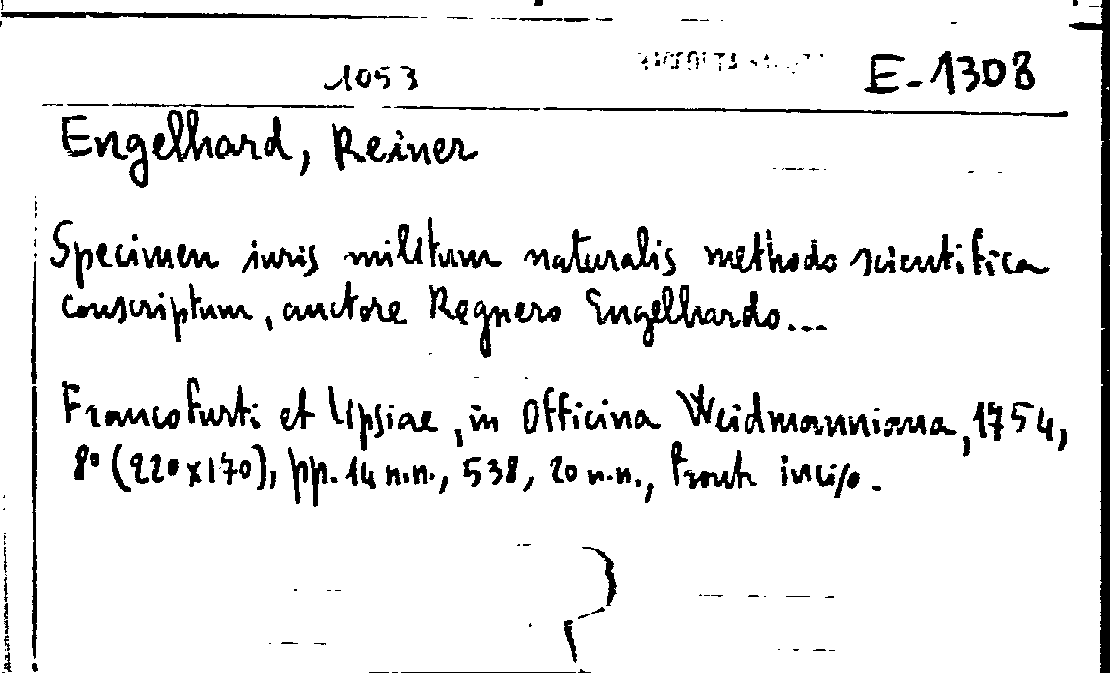 1053 RACCOLTA E-1308
Engelhard, Reiner
Specimen iuris militum naturalis methodo scientifica
conscriptum, auctore Regnero Engelhardo...
Francofurti et Lipsiae, in Officina Weidmanniana, 1754,
8° (220x170), pp. 14 n.n., 538, 20 n.n., front. inciso.